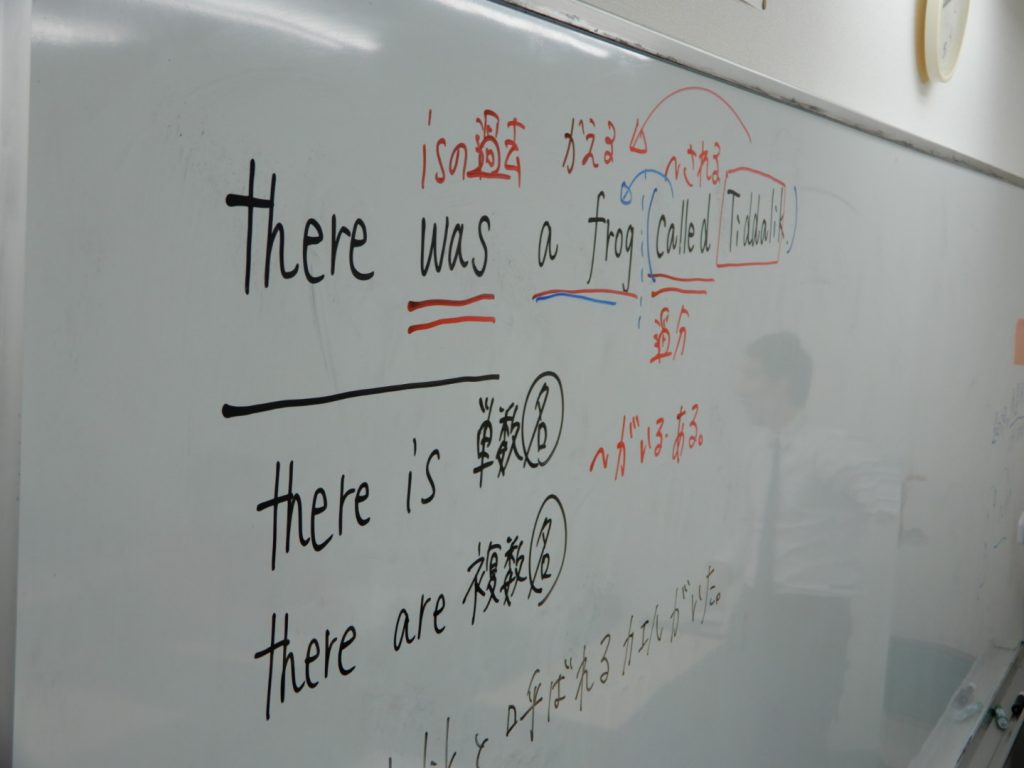 isの過去 かえる ～される
there was a frog (called Tiddalik)
過分
there is 単数名 ～がいる・ある。
there are 複数名
と呼ばれるカエルがいた。